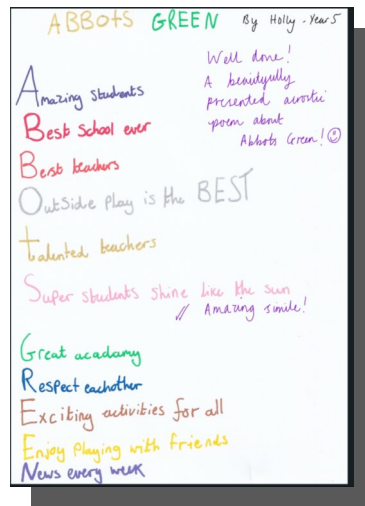 ABBOtS GREEN By Holly - Year 5
Well done!
A beautifully
presented acrostic
poem about
Abbots Green! ☺
Amazing students
Best school ever
Best teachers
OutSide play is the BEST
talented teachers
Super students shine like the sun
// Amazing simile!
Great acadamy
Respect eachother
Exciting activities for all
Enjoy Playing with friends
News every week